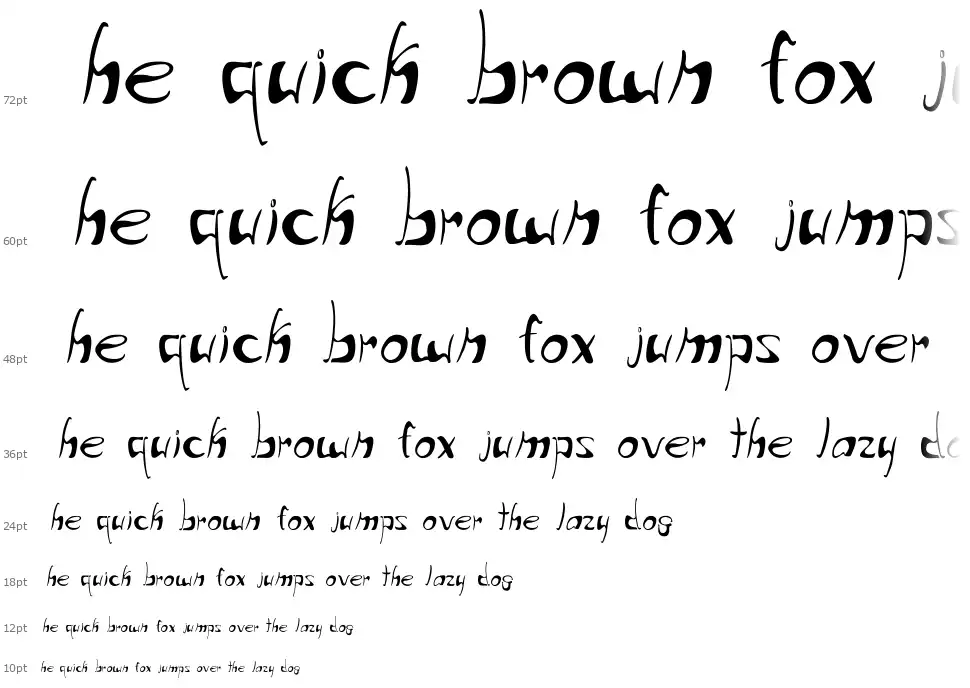 72pt he quick brown fox j
60pt he quick brown fox jumps
48pt he quick brown fox jumps over
36pt he quick brown fox jumps over the lazy do
24pt he quick brown fox jumps over the lazy dog
18pt he quick brown fox jumps over the lazy dog
12pt he quick brown fox jumps over the lazy dog
10pt he quick brown fox jumps over the lazy dog